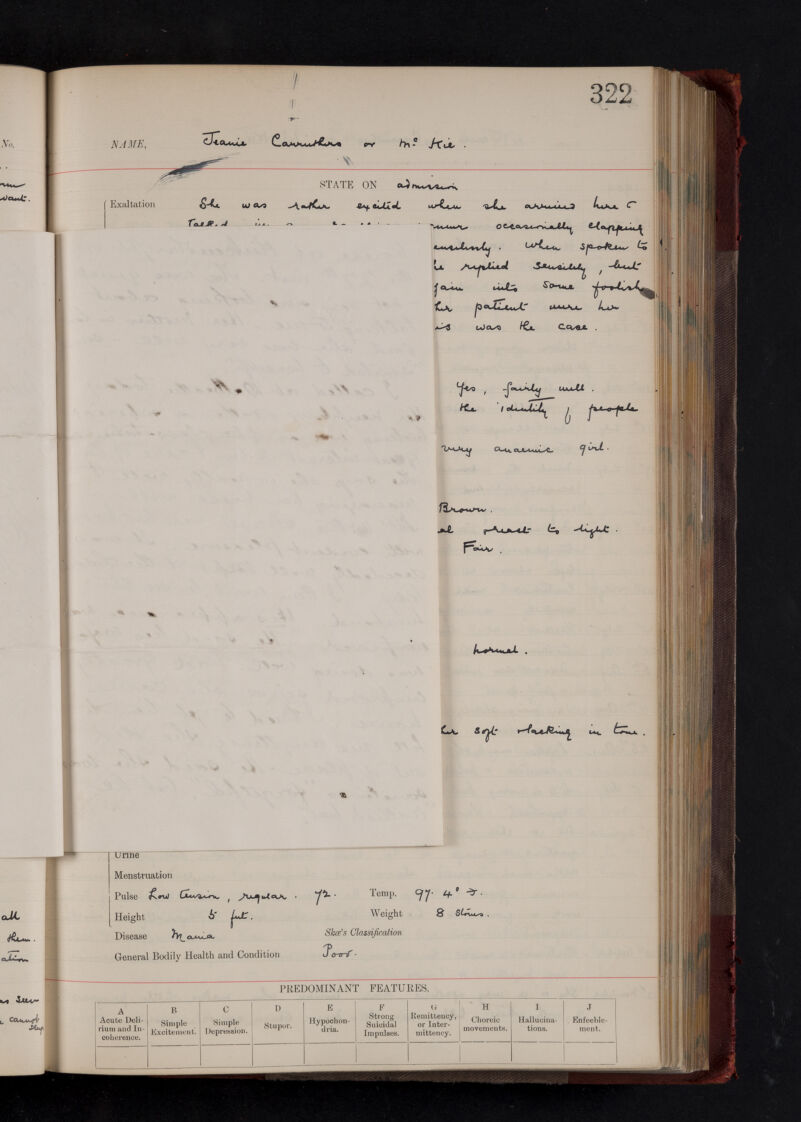 322
No.
NAME, Jeanie Carruthers or McKie.
STATE ON admission
want.
Exaltation She was rather excited when she arrived here &
talked in a occasionally clapping
When spoken to
he replied sensibly, but
gain into some foolish
patient were her
is was the case.
Yes, fairly well.
the identity of people
very anaemic girl.
Brown.
react to light.
Fair.
normal.
her soft & lacking in tone.
Urine
Menstruation
Pulse Low tension, regular. 72. Temp. 97.4° F.
all
Height 5 feet. Weight 8 stones.
them.
Disease Mania Skae's Classification
General Bodily Health and Condition Poor.
PREDOMINANT FEATURES.
cannot
A B C D E F G H I J
Acute Delirium and Incoherence. Simple Excitement. Simple Depression. Stupor. Hypochondria. Strong Suicidal Impulses. Remittency, or Intermittency. Choreic movements. Hallucinations. Enfeeblement.